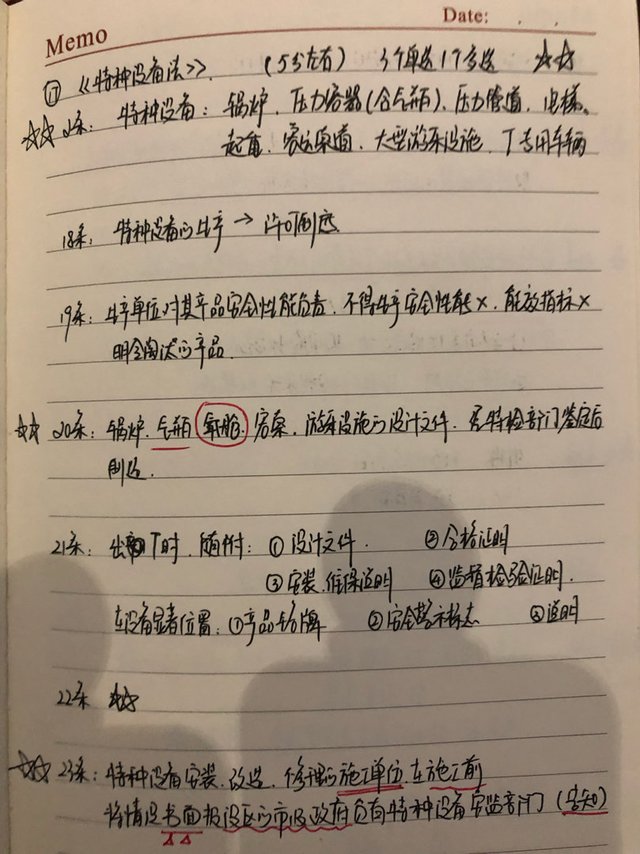 Memo
Date: . .
⑰ 《特种设备法》. (5分左右) 3个单选1个多选 ☆☆
☆☆ 2条: 特种设备: 锅炉. 压力容器(含气瓶). 压力管道. 电梯.
起重. 客运索道. 大型游乐设施. 厂专用车辆
18条: 特种设备的生产 → 许可制度
19条: 生产单位对其产品安全性能负责. 不得生产安全性能×. 能效指标×
明令淘汰的产品.
☆☆ 20条: 锅炉. 气瓶 氧舱. 客索. 游乐设施的设计文件. 特检部门鉴定后
制造.
21条: 出厂时. 随附: ① 设计文件. ② 合格证明
③ 安装. 维保说明 ④ 监督检验证明.
在设备显著位置: ① 产品铭牌 ② 安全警示标志 ③ 说明
22条 ☆☆
☆☆ 23条: 特种设备安装. 改造. 修理的施工单位. 在施工前
将情况书面报设区的市级政府负有特种设备安监部门 (告知)